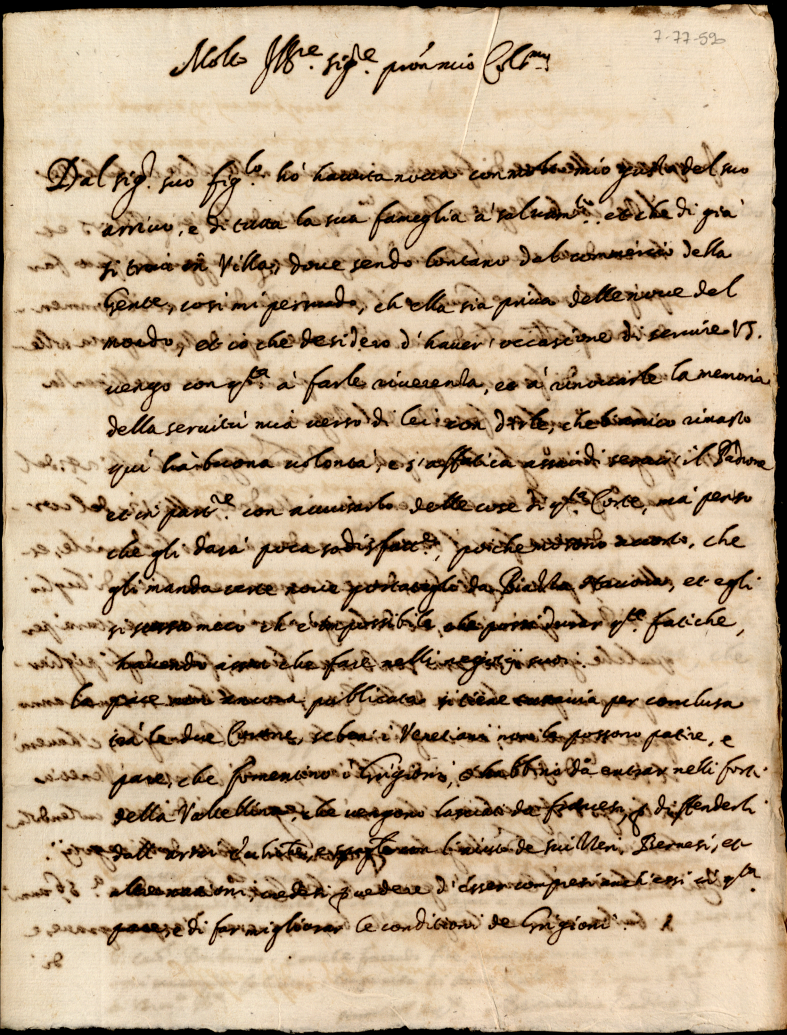 7-77-59
Molto Ill.re sig.re pron mio Col.mo
Dal sig.r suo fig.lo hò havuta nova con molto mio gusto del suo
arrivo, e di tutta la sua fameglia à salvam.to, et che di già
si trova in Villa, dove sendo lontano dal commercio della
Gente, così mi persuado, ch'ella sia priva delle nove del
mondo, et io che desidero d'haver' occasione di servire VS.
vengo con q.sta à farle riverenda, et à rinovarle la memoria
della servitù mia verso di lei con dirle, che l'amico rimasto
quì hà buona volontà, e s'affatica assai di servir' il Padrone
et in part.re con avvisarlo delle cose di q.sta Corte, mà penso
che gli darà poca sodisfatt.e, poiche accorto, che
gli manda certe nove da Piazza, et egli
si meco ch'è impossibile, che possi durar q.ste fatiche,
havendo assai che fare nelli registri suoi.
La pace non ancora publicata si tiene tuttavia per conclusa
trà le due Corone, se ben i Venetiani non la possono patire, e
pare, che fomentino i Grigioni, e habbino da entrar nelli forti
della Valtellina, che vengono lasciati da francesi, p diffenderli
dall' armi l'aiuto de suizzeri, Bernesi, et
p vedere d'esser compresi anch'essi in q.sta
pace, e di far migliorar le conditioni de Grigioni.
di